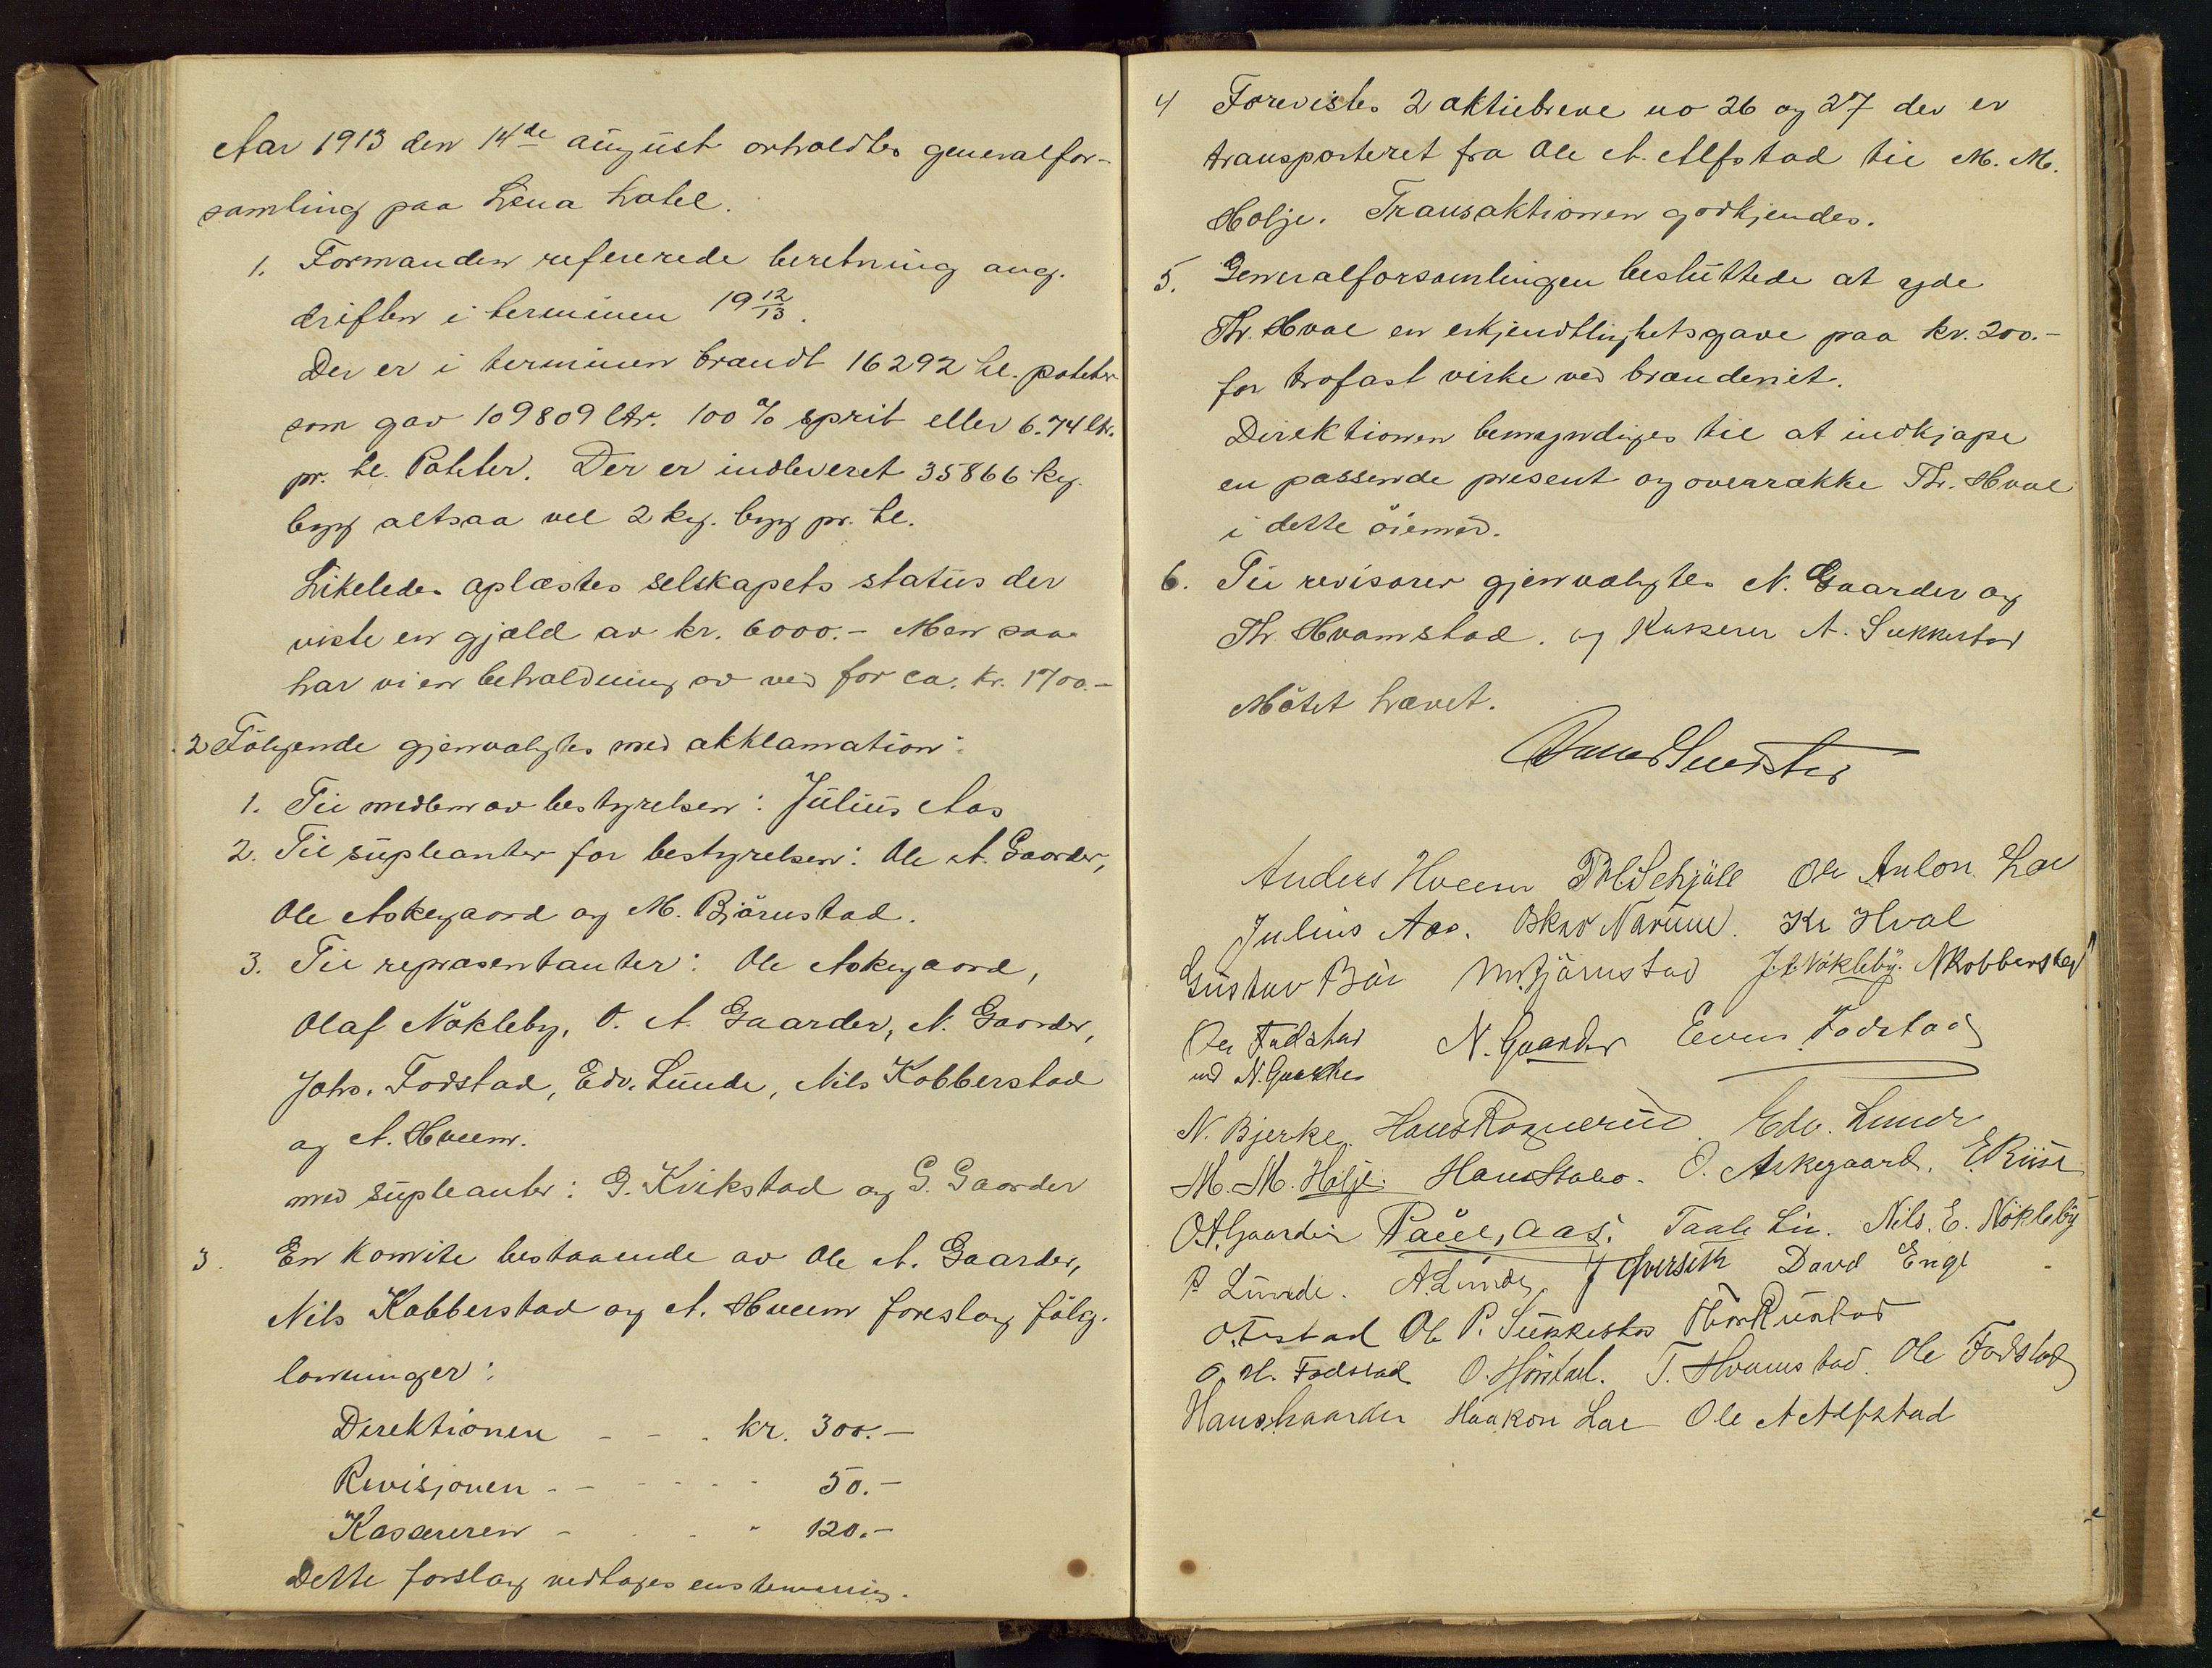 Aar 1913 den 14de august avholdtes generalfor-
samling paa Lena hotel.
1. Formanden refererede beretning ang.
driften i terminen 19 12/13.
Der er i terminen brændt 16292 hl. poteter
som gav 109809 ltr. 100 % sprit eller 6.74 ltr.
pr. hl. Poteter. Der er indleveret 35866 kg.
byg altsaa vel 2 kg. byg pr. hl.
Likeledes oplæstes selskapets status der
viste en gjæld av kr. 6000.- Men saa
har vi en beholdning av ved for ca. kr. 1700.-
2 Følgende gjenvalgtes med akklamation:
1. Til medlem av bestyrelsen: Julius Aas
2. Til supleanter for bestyrelsen: Ole A. Gaarder,
Ole Askegaard og M. Bjørnstad.
3. Til repræsentanter: Ole Askegaard,
Olaf Nökleby, O. A. Gaarder, N. Gaarder,
Johs. Fodstad, Edv. Lunde, Nils Kobberstad
og A. Hveem.
med supleanter: G. Kvikstad og G. Gaarder
3. En komite bestaaende av Ole A. Gaarder,
Nils Kobberstad og A. Hveem foreslog følg.
lønninger:
Direktionen - - - kr. 300.-
Revisjonen - - - - - - 50.-
Kasæreren - - - - 120.-
Dette forslag vedtages enstemmig.
4 Forevistes 2 aktiebreve no 26 og 27 der er
transporteret fra Ole A. Alfstad til M. M.
Holje. Transaktionen godkjendes.
5. Generalforsamlingen besluttede at yde
Th. Hval en erkjendtlighetsgave paa kr. 200.-
for trofast virke ved brænderiet.
Direktionen bemyndiges til at indkjøpe
en passende present og overrække Th. Hval
i dette öiemed.
6. Til revisorer gjenvalgtes N. Gaarder og
Th. Hvamstad. og Kasserer A. Sukkestad
Mötet hævet.
Anders Hveem Ole Anton Loe
Julius Aas. Oskar Narum. Kr Hval
Gustav Bøe M. Bjørnstad J. E. Nökleby. N Kobberstad
Ole Fodstad N. Gaarder Even Fodstad
ved N. Gaarder
N. Bjerke. Hans Rognerud. Edv. Lunde
M. M. Holje. Hans Stabo. O. Askegaard. E Riise
O. A. Gaarder Paul, Aas. Taale Lie. Nils. E. Nökleby
P Lunde. A. Lunde, J Qverseth David Enge
Ole P. Sukkestad
O. H. Fodstad T. Hvamstad. Ole Fodstad
Hans Gaarder Haakon Loe Ole A Alfstad